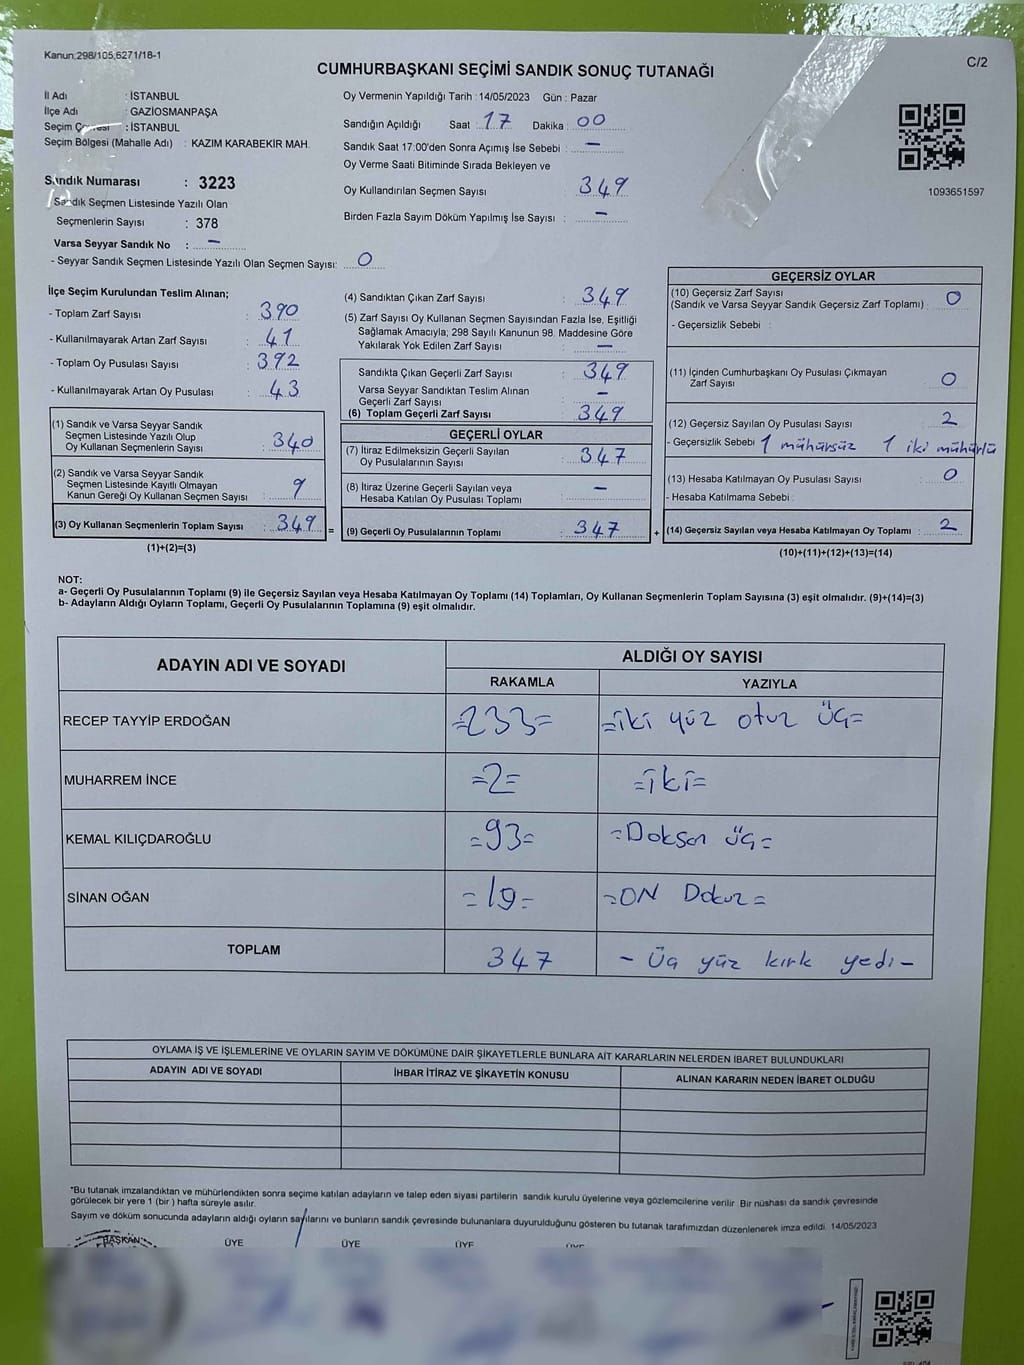 Kanun:298/105,6271/18-1
C/2
CUMHURBAŞKANI SEÇİMİ SANDIK SONUÇ TUTANAĞI
İl Adı : İSTANBUL
İlçe Adı : GAZİOSMANPAŞA
Seçim : İSTANBUL
Seçim Bölgesi (Mahalle Adı) : KAZIM KARABEKİR MAH.
Sandık Numarası : 3223
Sandık Seçmen Listesinde Yazılı Olan
Seçmenlerin Sayısı : 378
Varsa Seyyar Sandık No : -
- Seyyar Sandık Seçmen Listesinde Yazılı Olan Seçmen Sayısı: 0
Oy Vermenin Yapıldığı Tarih : 14/05/2023 Gün : Pazar
Sandığın Açıldığı Saat : 17 Dakika : 00
Sandık Saat 17:00'den Sonra Açımış İse Sebebi : -
Oy Verme Saati Bitiminde Sırada Bekleyen ve
Oy Kullandırılan Seçmen Sayısı : 349
Birden Fazla Sayım Döküm Yapılmış İse Sayısı : -
1093651597
İlçe Seçim Kurulundan Teslim Alınan;
- Toplam Zarf Sayısı : 390
- Kullanılmayarak Artan Zarf Sayısı : 41
- Toplam Oy Pusulası Sayısı : 392
- Kullanılmayarak Artan Oy Pusulası : 43
(1) Sandık ve Varsa Seyyar Sandık
Seçmen Listesinde Yazılı Olup
Oy Kullanan Seçmenlerin Sayısı : 340
(2) Sandık ve Varsa Seyyar Sandık
Seçmen Listesinde Kayıtlı Olmayan
Kanun Gereği Oy Kullanan Seçmen Sayısı : 9
(3) Oy Kullanan Seçmenlerin Toplam Sayısı : 349 =
(1)+(2)=(3)
(4) Sandıktan Çıkan Zarf Sayısı : 349
(5) Zarf Sayısı Oy Kullanan Seçmen Sayısından Fazla İse, Eşitliği
Sağlamak Amacıyla; 298 Sayılı Kanunun 98. Maddesine Göre
Yakılarak Yok Edilen Zarf Sayısı : -
Sandıkta Çıkan Geçerli Zarf Sayısı : 349
Varsa Seyyar Sandıktan Teslim Alınan
Geçerli Zarf Sayısı : -
(6) Toplam Geçerli Zarf Sayısı : 349
GEÇERLİ OYLAR
(7) İtiraz Edilmeksizin Geçerli Sayılan
Oy Pusulalarının Sayısı : 347
(8) İtiraz Üzerine Geçerli Sayılan veya
Hesaba Katılan Oy Pusulası Toplamı : -
(9) Geçerli Oy Pusulalarının Toplamı : 347 +
GEÇERSİZ OYLAR
(10) Geçersiz Zarf Sayısı
(Sandık ve Varsa Seyyar Sandık Geçersiz Zarf Toplamı) : 0
- Geçersizlik Sebebi :
(11) İçinden Cumhurbaşkanı Oy Pusulası Çıkmayan
Zarf Sayısı : 0
(12) Geçersiz Sayılan Oy Pusulası Sayısı : 2
- Geçersizlik Sebebi 1 mühürsüz 1 iki mühürlü
(13) Hesaba Katılmayan Oy Pusulası Sayısı : 0
- Hesaba Katılmama Sebebi :
(14) Geçersiz Sayılan veya Hesaba Katılmayan Oy Toplamı : 2
(10)+(11)+(12)+(13)=(14)
NOT:
a- Geçerli Oy Pusulalarının Toplamı (9) ile Geçersiz Sayılan veya Hesaba Katılmayan Oy Toplamı (14) Toplamları, Oy Kullanan Seçmenlerin Toplam Sayısına (3) eşit olmalıdır. (9)+(14)=(3)
b- Adayların Aldığı Oyların Toplamı, Geçerli Oy Pusulalarının Toplamına (9) eşit olmalıdır.
ADAYIN ADI VE SOYADI ALDIĞI OY SAYISI
RAKAMLA YAZIYLA
RECEP TAYYİP ERDOĞAN =233= =iki yüz otuz üç=
MUHARREM İNCE =2= =iki=
KEMAL KILIÇDAROĞLU =93= =Doksan üç=
SİNAN OĞAN =19= =ON Dokuz=
TOPLAM 347 - Üç yüz kırk yedi -
OYLAMA İŞ VE İŞLEMLERİNE VE OYLARIN SAYIM VE DÖKÜMÜNE DAİR ŞİKAYETLERLE BUNLARA AİT KARARLARIN NELERDEN İBARET BULUNDUKLARI
ADAYIN ADI VE SOYADI İHBAR İTİRAZ VE ŞİKAYETİN KONUSU ALINAN KARARIN NEDEN İBARET OLDUĞU
*Bu tutanak imzalandıktan ve mühürlendikten sonra seçime katılan adayların ve talep eden siyasi partilerin sandık kurulu üyelerine veya gözlemcilerine verilir. Bir nüshası da sandık çevresinde
görülecek bir yere 1 (bir ) hafta süreyle asılır.
Sayım ve döküm sonucunda adayların aldığı oyların sayılarını ve bunların sandık çevresinde bulunanlara duyurulduğunu gösteren bu tutanak tarafımızdan düzenlenerek imza edildi. 14/05/2023
BAŞKAN ÜYE ÜYE ÜYE